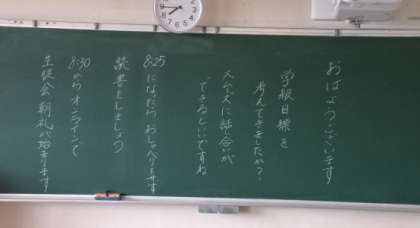 おはようございます
学級目標を
考えてきましたか?
スムーズに話し合いが
できるといいですね
8:25
になったら おしゃべりをせず
読書をしましょう
8:30
からオンラインで
生徒会朝礼が始まります